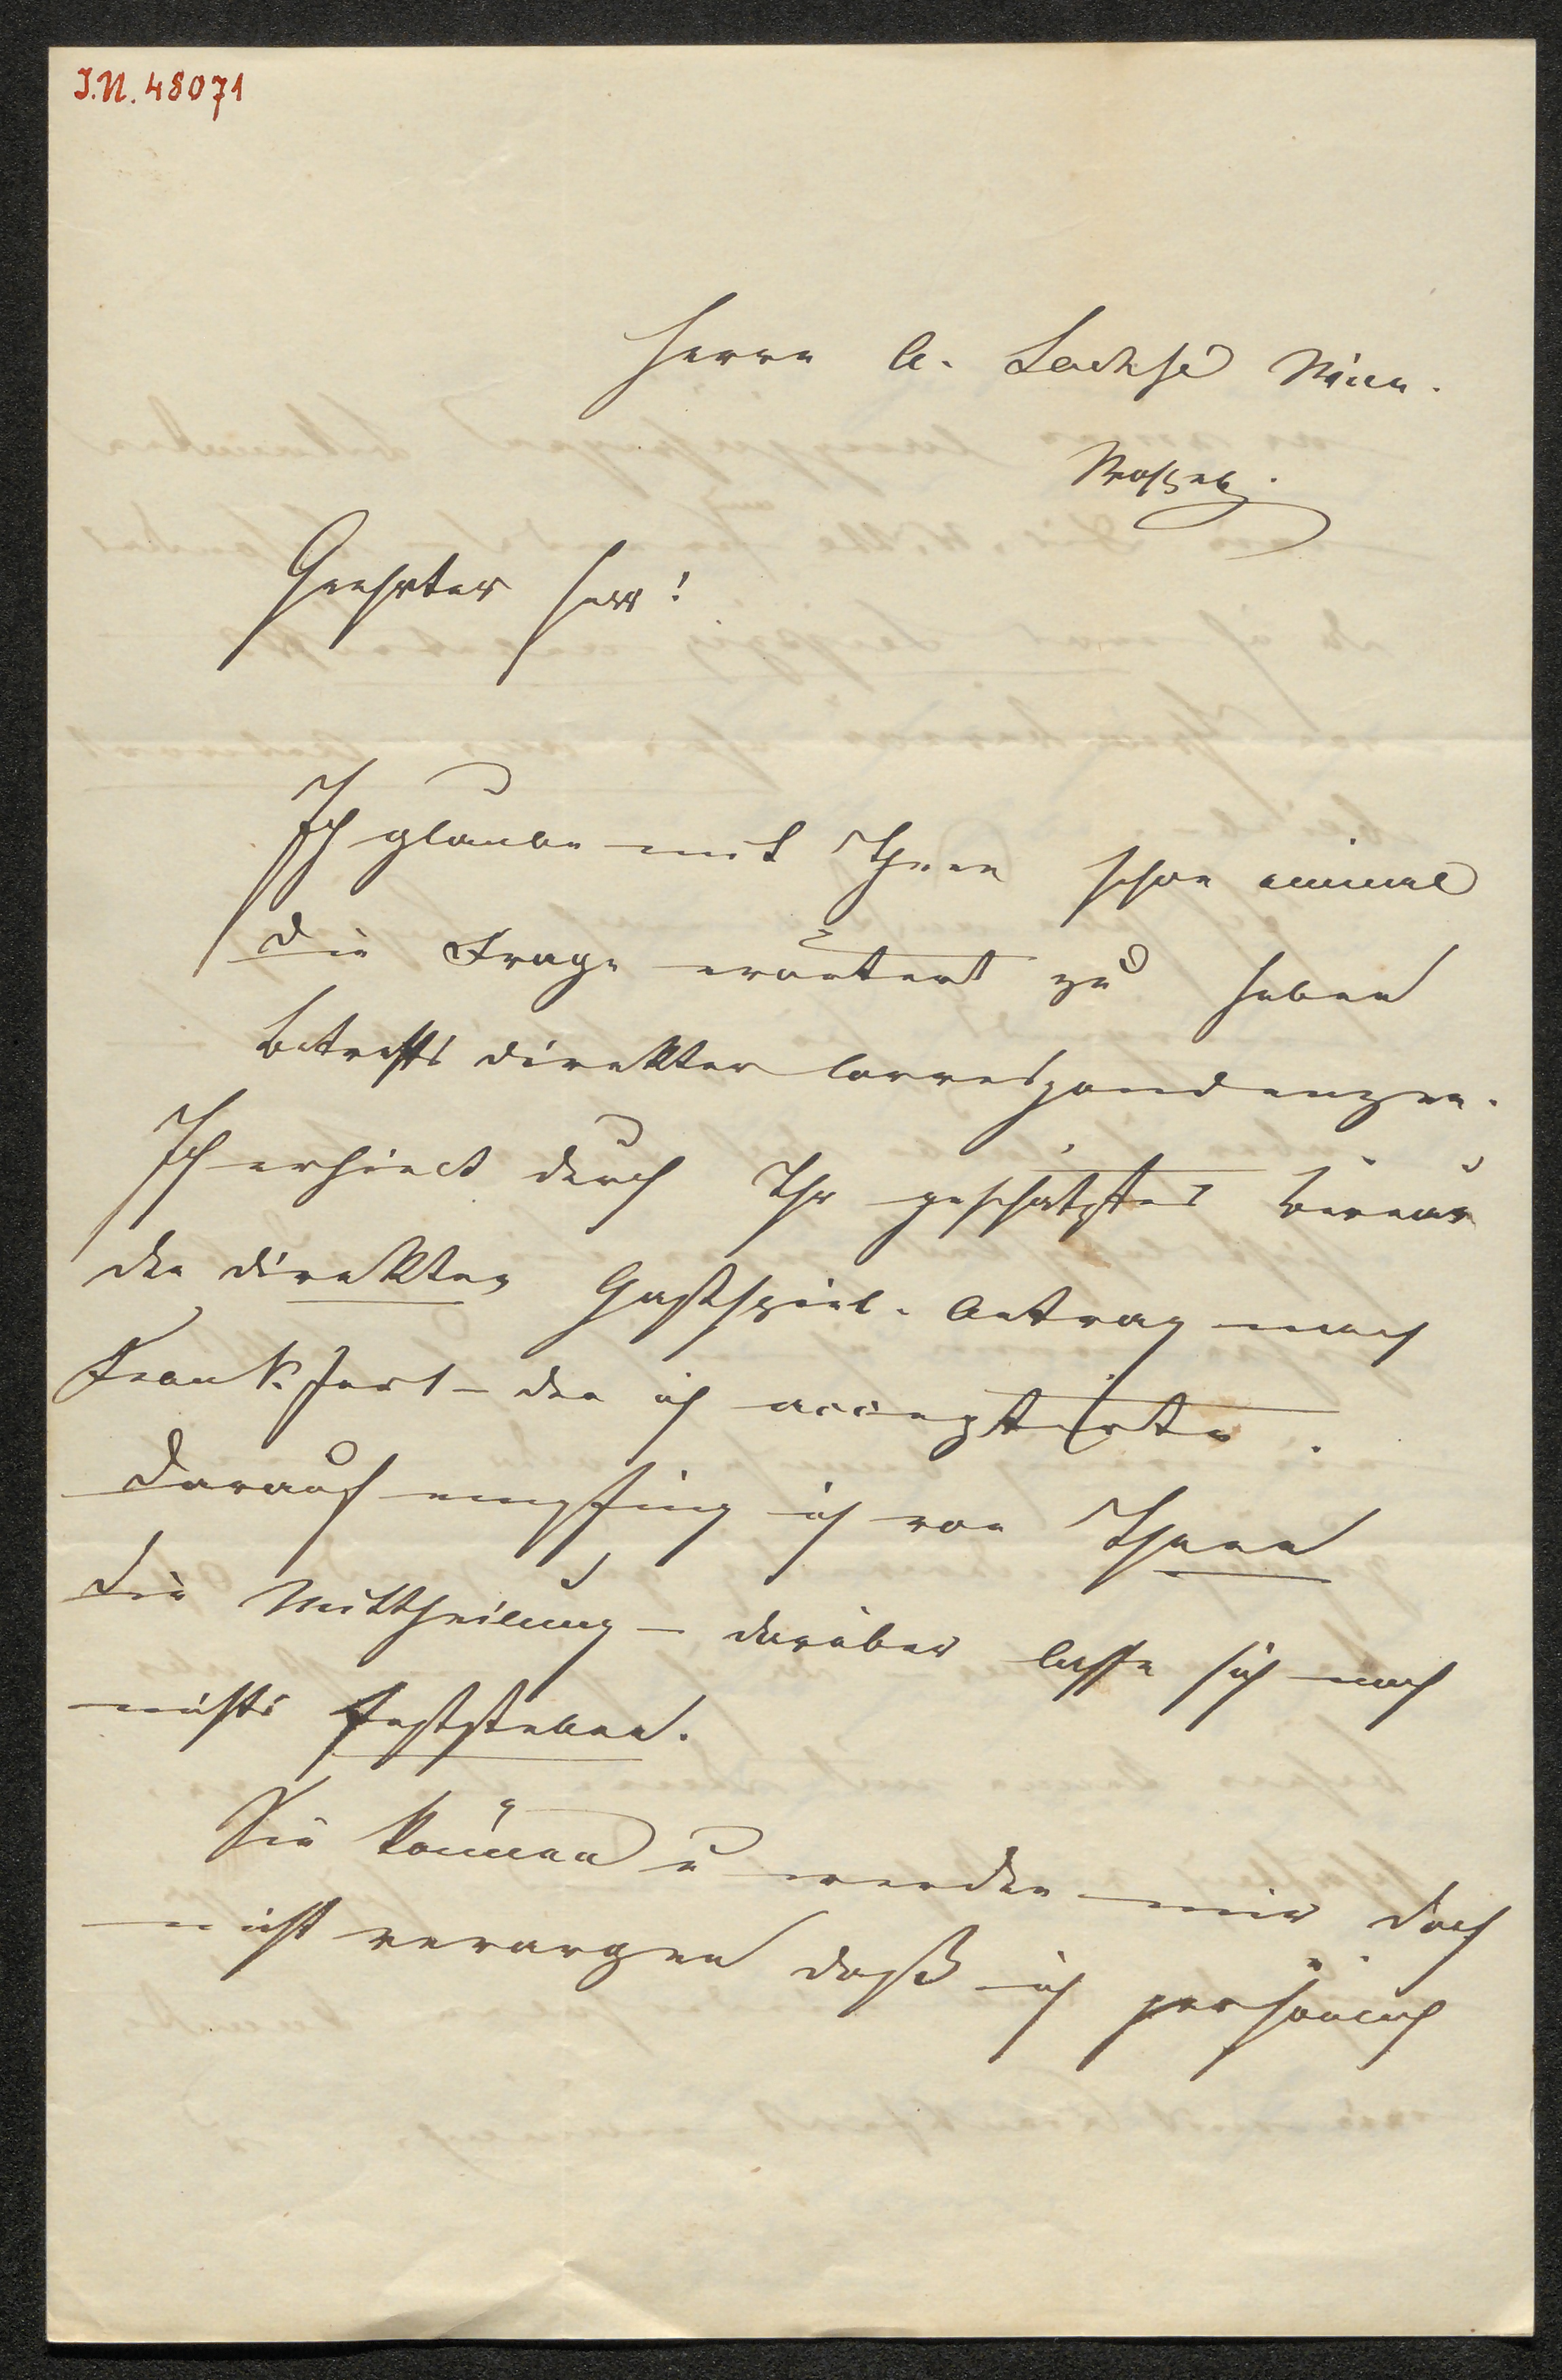 J.N. 48071
Herrn A. Sachse Wien.
Geehrter Herr!
Ich glaube mit Ihnen schon einmal
die Frage erörtert zu haben
betreffs direkter Correspondenzen.
Ich erhielt durch Ihr geschätztes Bureau
den direkten Gastspiel-Antrag nach
Frankfurt – den ich acceptirte.
Darauf empfing ich von Ihnen
die Mittheilung – darüber lasse sich noch
nichts feststellen.
Sie können u werden mir doch
nicht verargen daß ich persönlich